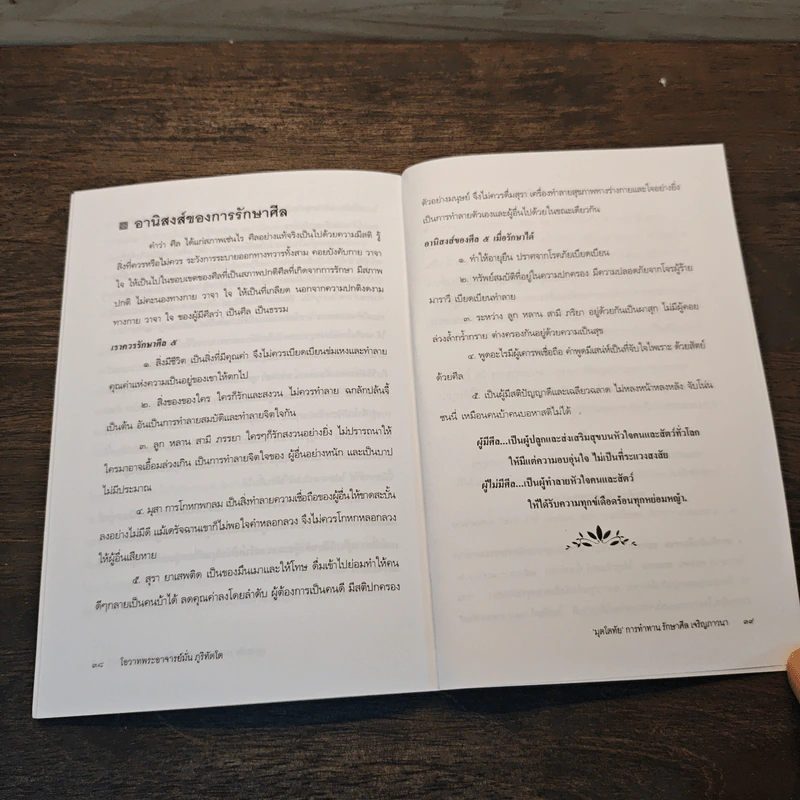 อานิสงส์ของการรักษาศีล
คำว่า ศีล ได้แก่สภาพเช่นไร ศีลอย่างแท้จริงเป็นไปด้วยความมีสติ รู้
สิ่งที่ควรหรือไม่ควร ระวังการระบายออกทางทวารทั้งสาม คอยบังคับกาย วาจา
ใจ ให้เป็นไปในขอบเขตของศีลที่เป็นสภาพปกติศีลที่เกิดจากการรักษา มีสภาพ
ปกติ ไม่คะนองทางกาย วาจา ใจ ให้เป็นที่เกลียด นอกจากความปกติดงาม
ทางกาย วาจา ใจ ของผู้มีศีลว่า เป็นศีล เป็นธรรม
เราควรรักษาศีล ๕
๑. สิ่งมีชีวิต เป็นสิ่งที่มีคุณค่า จึงไม่ควรเบียดเบียนข่มเหงและทำลาย
คุณค่าแห่งความเป็นอยู่ของเขาให้ตกไป
๒. สิ่งของของใคร ใครก็รักและสงวน ไม่ควรทำลาย ฉกลักปล้นจี้
เป็นต้น อันเป็นการทำลายสมบัติและทำลายจิตใจกัน
๓. ลูก หลาน สามี ภรรยา ใครๆก็รักสงวนอย่างยิ่ง ไม่ปรารถนาให้
ใครมาอาจเอื้อมล่วงเกิน เป็นการทำลายจิตใจของ ผู้อื่นอย่างหนัก และเป็นบาป
ไม่มีประมาณ
๔. มุสา การโกหกพกลม เป็นสิ่งทำลายความเชื่อถือของผู้อื่นให้ขาดสะบั้น
ลงอย่างไม่มีดี แม้เดรัจฉานเขาก็ไม่พอใจคำหลอกลวง จึงไม่ควรโกหกหลอกลวง
ให้ผู้อื่นเสียหาย
๕. สุรา ยาเสพติด เป็นของมึนเมาและให้โทษ ดื่มเข้าไปย่อมทำให้คน
ดีๆกลายเป็นคนบ้าได้ ลดคุณค่าลงโดยลำดับ ผู้ต้องการเป็นคนดี มีสติปกครอง
๓๘ โอวาทพระอาจารย์มั่น ภูริทัตโต
ตัวอย่างมนุษย์ จึงไม่ควรดื่มสุรา เครื่องทำลายสุขภาพทางร่างกายและใจอย่างยิ่ง
เป็นการทำลายตัวเองและผู้อื่นไปด้วยในขณะเดียวกัน
อานิสงส์ของศีล ๕ เมื่อรักษาได้
๑. ทำให้อายุยืน ปราศจากโรคภัยเบียดเบียน
๒. ทรัพย์สมบัติที่อยู่ในความปกครอง มีความปลอดภัยจากโจรผู้ร้าย
มาราวี เบียดเบียนทำลาย
๓. ระหว่าง ลูก หลาน สามี ภริยา อยู่ด้วยกันเป็นผาสุก ไม่มีผู้คอย
ล่วงล้ำกร้ำกราย ต่างครองกันอยู่ด้วยความเป็นสุข
๔. พูดอะไรมีผู้เคารพเชื่อถือ คำพูดมีเสน่ห์เป็นที่จับใจไพเราะ ด้วยสัตย์
ด้วยศีล
๕. เป็นผู้มีสติปัญญาดีและเฉลียวฉลาด ไม่หลงหน้าหลงหลัง จับโน่น
ชนนี่ เหมือนคนบ้าคนบอหาสติไม่ได้
ผู้มีศีล...เป็นผู้ปลูกและส่งเสริมสุขบนหัวใจคนและสัตว์ทั่วโลก
ให้มีแต่ความอบอุ่นใจ ไม่เป็นที่ระแวงสงสัย
ผู้ไม่มีศีล...เป็นผู้ทำลายหัวใจคนและสัตว์
ให้ได้รับความทุกข์เดือดร้อนทุกหย่อมหญ้า.
'มุตโตทัย' การทำทาน รักษาศีล เจริญภาวนา ๓๙